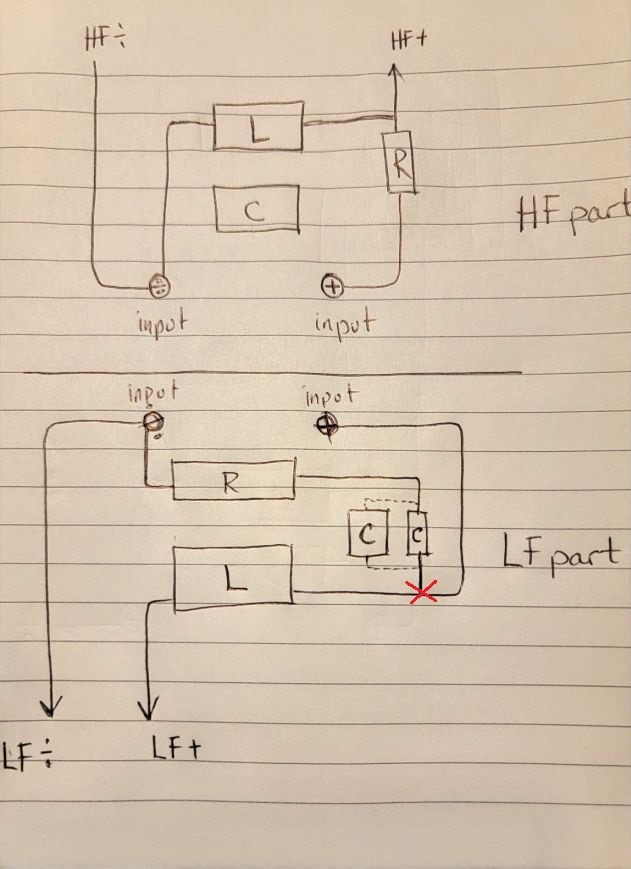 HF÷
HF+
L
R
C
HF part
÷
+
input
input
input
input
÷
+
R
C
C
LF part
L
LF÷
LF+